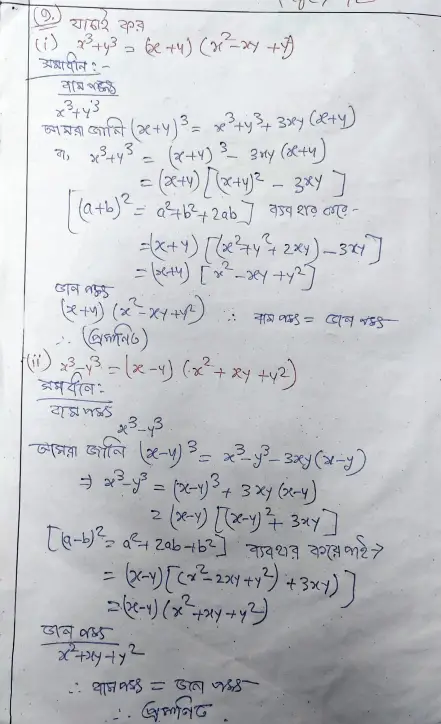 (9.) যাচাই কৰ
(i) x³+y³ = (x+y) (x²-xy+y²)
সমাধান :-
বাম পক্ষ
x³+y³
আমৰা জানি (x+y)³ = x³+y³+3xy(x+y)
বা, x³+y³ = (x+y)³ - 3xy(x+y)
= (x+y) [(x+y)² - 3xy]
[(a+b)² = a²+b²+2ab] ব্যবহাৰ কৰে-
= (x+y) [(x²+y²+2xy) - 3xy]
= (x+y) [x²-xy+y²]
ডান পক্ষ
(x+y) (x²-xy+y²) ∴ বাম পক্ষ = ডান পক্ষ
∴ (প্ৰমাণিত)
(ii) x³-y³ = (x-y) (x²+xy+y²)
সমাধান :-
বাম পক্ষ
x³-y³
আমৰা জানি (x-y)³ = x³-y³-3xy(x-y)
⇒ x³-y³ = (x-y)³ + 3xy(x-y)
= (x-y) [(x-y)² + 3xy]
[(a-b)² = a²+2ab+b²] ব্যবহাৰ কৰে পাই →
= (x-y) [(x²-2xy+y²) + 3xy)]
= (x-y) (x²+xy+y²)
ডান পক্ষ
x²+xy+y²
∴ বাম পক্ষ = ডান পক্ষ
∴ প্ৰমাণিত.